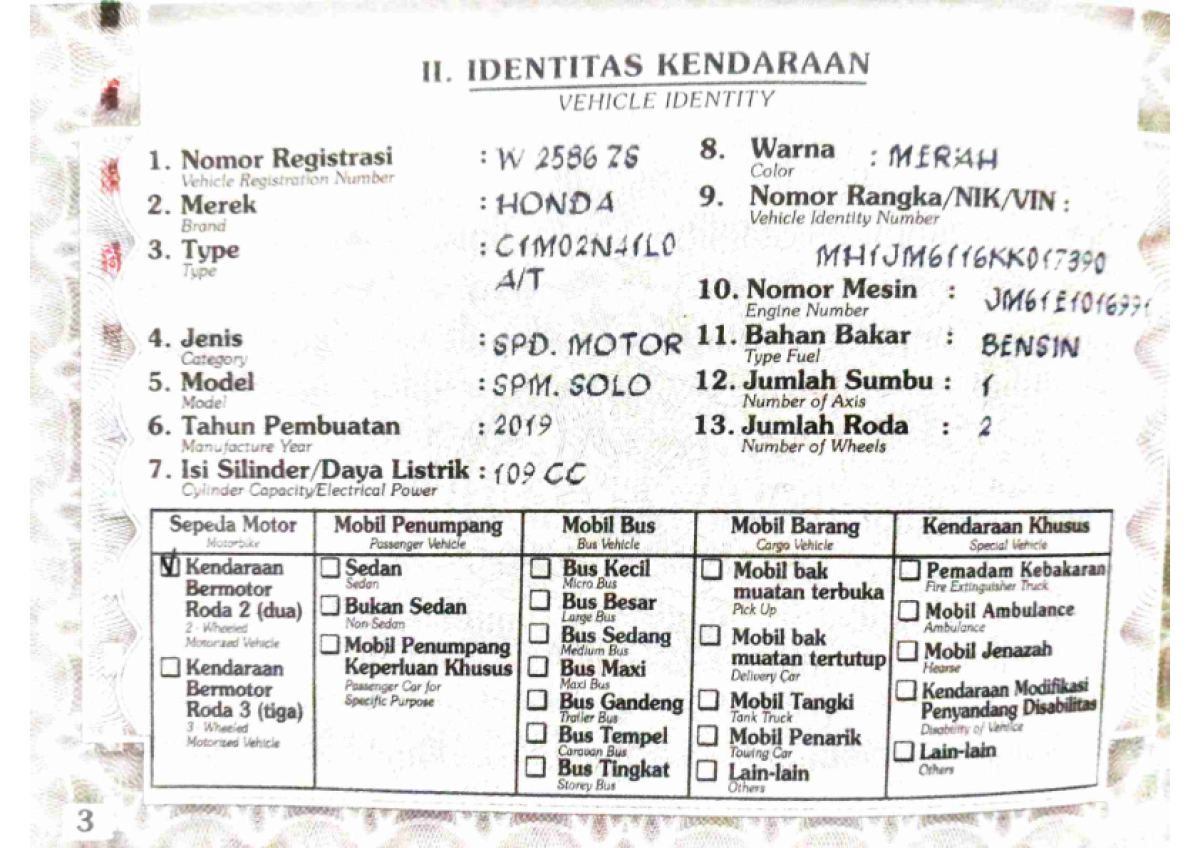 II. IDENTITAS KENDARAAN
VEHICLE IDENTITY
1. Nomor Registrasi : W 2586 ZS
Vehicle Registration Number
2. Merek : HONDA
Brand
3. Type : C1M02N41L0
Type
A/T
4. Jenis : SPD. MOTOR
Category
5. Model : SPM. SOLO
Model
6. Tahun Pembuatan : 2019
Manufacture Year
7. Isi Silinder/Daya Listrik : 109 CC
Cylinder Capacity/Electrical Power
8. Warna : MERAH
Color
9. Nomor Rangka/NIK/VIN :
Vehicle Identity Number
MH1JM6116KK017390
10. Nomor Mesin : JM61E1016991
Engine Number
11. Bahan Bakar : BENSIN
Type Fuel
12. Jumlah Sumbu : 1
Number of Axis
13. Jumlah Roda : 2
Number of Wheels
Sepeda Motor
Motorbike
Kendaraan
Bermotor
Roda 2 (dua)
2 - Wheeled
Motorized Vehicle
Kendaraan
Bermotor
Roda 3 (tiga)
3 - Wheeled
Motorized Vehicle
Mobil Penumpang
Passenger Vehicle
Sedan
Sedan
Bukan Sedan
Non-Sedan
Mobil Penumpang
Keperluan Khusus
Passenger Car for
Specific Purpose
Mobil Bus
Bus Vehicle
Bus Kecil
Micro Bus
Bus Besar
Large Bus
Bus Sedang
Medium Bus
Bus Maxi
Maxi Bus
Bus Gandeng
Trailer Bus
Bus Tempel
Caravan Bus
Bus Tingkat
Storey Bus
Mobil Barang
Cargo Vehicle
Mobil bak
muatan terbuka
Pick Up
Mobil bak
muatan tertutup
Delivery Car
Mobil Tangki
Tank Truck
Mobil Penarik
Towing Car
Lain-lain
Others
Kendaraan Khusus
Special Vehicle
Pemadam Kebakaran
Fire Extinguisher Truck
Mobil Ambulance
Ambulance
Mobil Jenazah
Hearse
Kendaraan Modifikasi
Penyandang Disabilitas
Disability of Vehicle
Lain-lain
Others
3